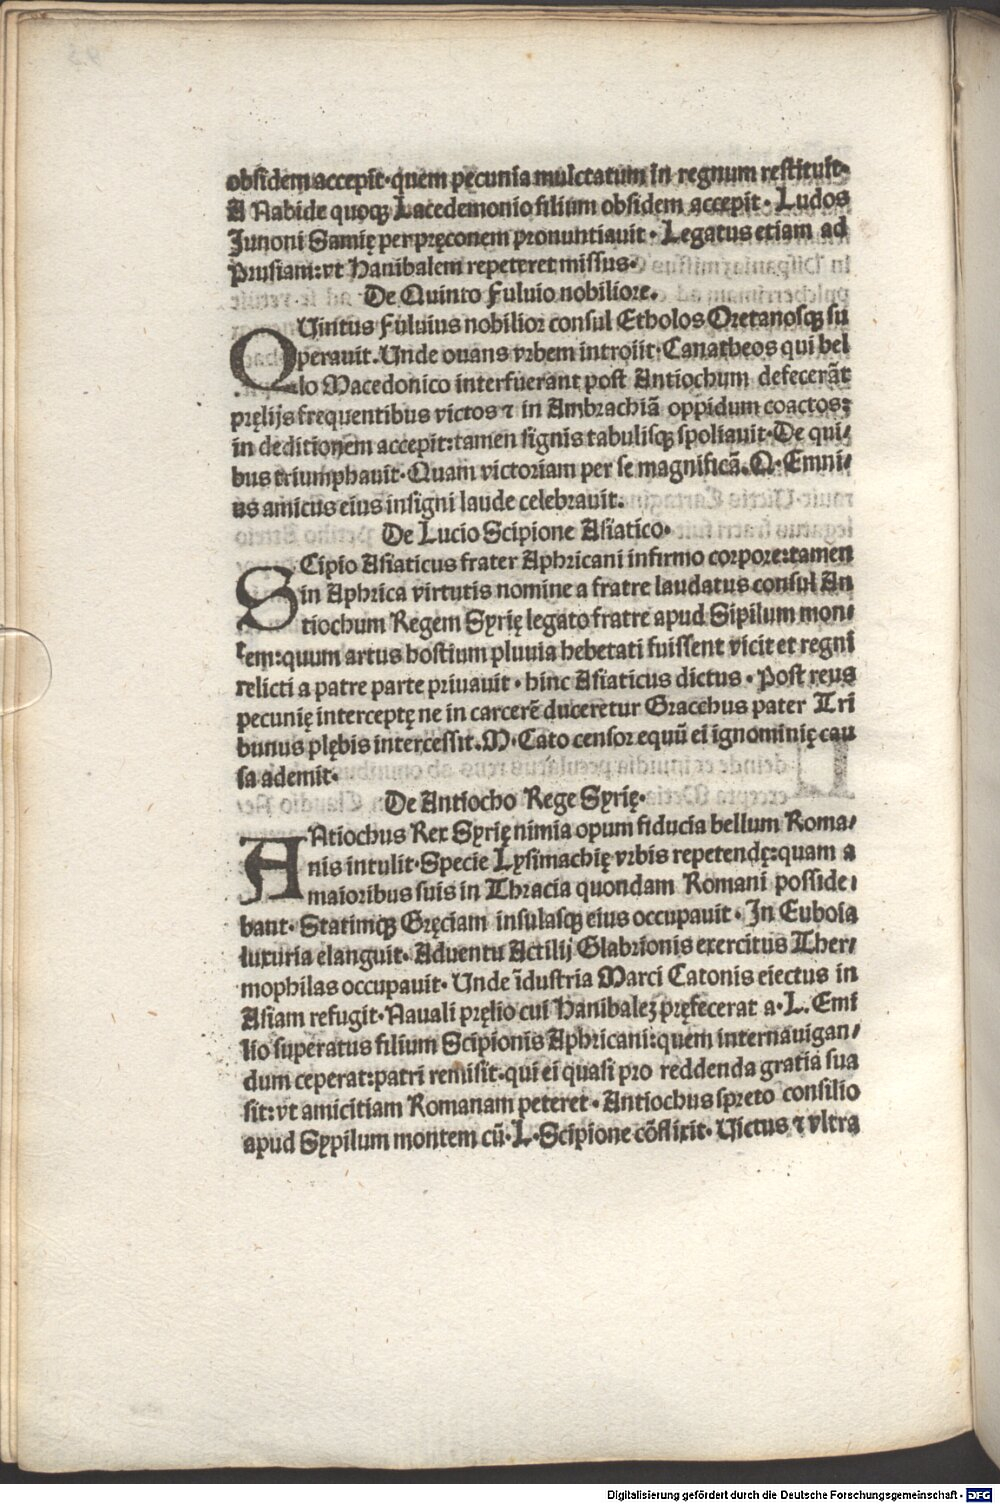 obsidem accepit·quem pecunia mulctatum in regnum restituit·
A Nabide quoqꝫ Lacedemonio filium obsidem accepit · Ludos
Junoni Samię per pręconem pronuntiauit · Legatus etiam ad
Prusiam:vt Hanibalem repeteret missus·
De Quinto Fuluio nobiliore.
QUintus Fuluius nobilior consul Etholos Oretanosqꝫ su
perauit.Unde ouans vrbem introiit·Canatheos qui bel
lo Macedonico interfuerant post Antiochum defecerãt
pręlijs frequentibus victos ⁊ in Ambrachiã oppidum coactos:
in deditionem accepit:tamen signis tabulisqꝫ spoliauit·De qui/
bus triumphauit·Quam victoriam per se magnificã.Q·Emni/
us amicus eius insigni laude celebrauit.
De Lucio Scipione Asiatico·
SCipio Asiaticus frater Aphricani infirmo corpore:tamen
in Aphrica virtutis nomine a fratre laudatus consul An
tiochum Regem Syrię legato fratre apud Sipilum mon/
tem:quum artus hostium pluuia hebetati fuissent vicit et regni
relicti a patre parte priuauit · hinc Asiaticus dictus · Post reus
pecunię interceptę ne in carcerẽ duceretur Gracchus pater Tri
bunus plębis intercessit.M·Cato censor equũ ei ignominię cau
sa ademit·
De Antiocho Rege Syrię·
ANtiochus Rex Syrię nimia opum fiducia bellum Roma/
nis intulit·Specie Lysimachię vrbis repetendę:quam a
maioribus suis in Thracia quondam Romani posside/
bant· Statimqꝫ Gręciam insulasqꝫ eius occupauit · In Euboia
luxuria elanguit· Aduentu Actilij Glabrionis exercitus Ther/
mophilas occupauit· Unde ĩdustria Marci Catonis eiectus in
Asiam refugit·Nauali pręlio cui Hanibaleꝫ pręfecerat a·L.Emi
lio superatus filium Scipionis Aphricani:quem internauigan/
dum ceperat:patri remisit·qui ei quasi pro reddenda gratia sua
sit:vt amicitiam Romanam peteret · Antiochus spreto consilio
apud Sypilum montem cũ·L·Scipione cõflixit· Uictus ⁊ vltra
Digitalisierung gefördert durch die Deutsche Forschungsgemeinschaft · DFG